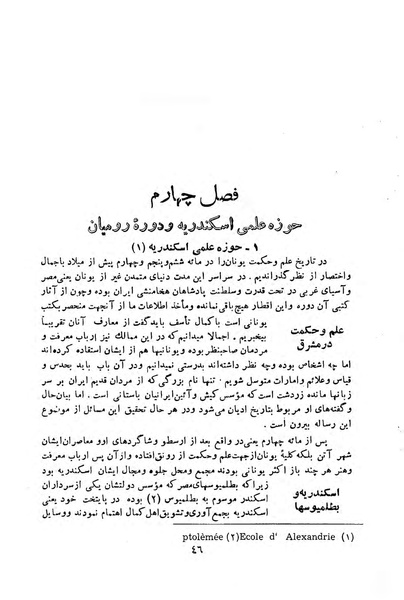 فصل چهارم
حوزه علمی اسکندریه و دورهٔ رومیان
۱ - حوزه علمی اسکندریه (۱)
در تاریخ علم وحکمت یونان را در مائه ششم وپنجم وچهارم پیش از میلاد باجمال
واختصار از نظر گذراندیم . در سراسر این مدت دنیای متمدن غیر از یونان یعنی مصر
وآسیای غربی در تحت قدرت وسلطنت پادشاهان هخامنشی ایران بوده وچون از آثار
کتبی آن دوره واین اقطار هیچ باقی نمانده ومأخذ اطلاعات ما از آنجهت منحصر بکتب
یونانی است باکمال تأسف باید گفت از معارف آنان تقریباً
علم و حکمت
بیخبریم . اجمالا میدانیم که در این ممالک نیز ارباب معرفت و
در مشرق
مردمان صاحبنظر بوده ویونانیها هم از ایشان استفاده کرده اند
اما چه اشخاص بوده وچه نظر داشته اند بدرستی نمیدانیم ودر آن باب باید بحدس و
قیاس وعلائم وامارات متوسل شویم . تنها نام بزرگی که از مردان قدیم ایران بر سر
زبانها مانده زردشت است که مؤسس کیش وآئین ایرانیان باستانی است . اما بیان حال
وگفته های او مربوط بتاریخ ادیان می شود ودر هر حال تحقیق این مسائل از موضوع
این رساله بیرون است .
پس از مائه چهارم یعنی در واقع بعد از ارسطو وشاگردهای اوو معاصران ایشان
شهر آتن بلکه کلیهٔ یونان از جهت علم وحکمت از رونق افتاده و از آن پس ارباب معرفت
وهنر هر چند باز اکثر یونانی بودند مجمع ومحل جلوه ومجال ایشان اسکندریه بود
زیرا که بطلمیوسهای مصر که مؤسس دولتشان یکی از سرداران
اسکندریه و
اسکندر موسوم به بطلمیوس (۲) بوده در پایتخت خود یعنی
بطلمیوسها
اسکندریه بجمع آوری وتشویق اهل کمال اهتمام نمودند ووسایل
ptolèmée (۲) Ecole d' Alexandrie (۱)
٤٦